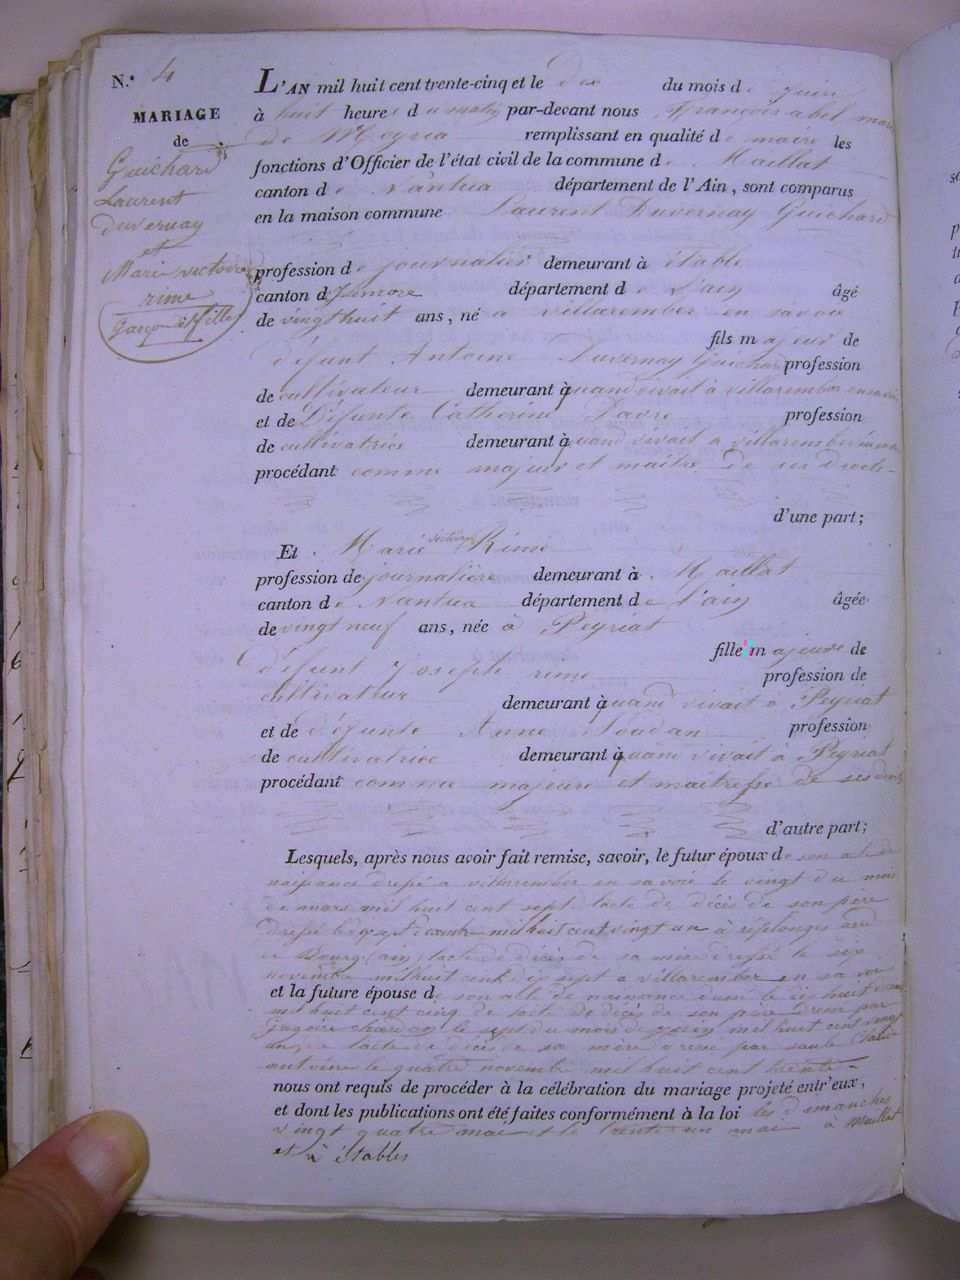 N.º 4
MARIAGE
de
Guichard
Laurent
duvernay
et
Marie victoire
rime
Garçon et fille
L'AN mil huit cent trente-cinq et le dix du mois de juin
à huit heure du matin par-devant nous François abel marie
de Meyria remplissant en qualité de maire les
fonctions d'Officier de l'état civil de la commune de Maillat
canton de Nantua département de l'Ain, sont comparus
en la maison commune Laurent Duvernay Guichard
profession de journalier demeurant à étable
canton d département de l'ain âgé
de vingt huit ans, né a villarember en savoie
fils majeur de
défunt Antoine Duvernay Guichard profession
de cultivateur demeurant à quand vivait à villarember en savoie
et de Défunte Catherine Favre profession
de cultivatrice demeurant à quand vivait a villarember
procédant comme majeur et maitre de ses droits
d'une part;
Et Marie victoire Rime
profession de journalière demeurant à Maillat
canton de Nantua département de l'ain âgée
de vingt neuf ans, née à Peyriat
fille majeure de
défunt Joseph rime profession de
cultivateur demeurant à quand vivait à Peyriat
et de défunte Anne profession
de cultivatrice demeurant à quand vivait à Peyriat
procédant comme majeure et maitresse de ses droits
d'autre part;
Lesquels, après nous avoir fait remise, savoir, le futur époux de son acte de
naissance dressé a villarember en savoie le vingt du mois
de mars mil huit cent sept lacte de décès de son père
dressé le sept mil huit cent vingt un à réplonges
de Bourg (ain) lacte de décès de sa mère dressé le six
novembre mil huit cent dix sept a villarember en savoie
et la future épouse de son acte de naissance dressé le dix huit
mil huit cent cinq de lacte de décès de son père dressé par
le sept du mois de mil huit cent vingt
lacte de décès de sa mère dressé par
le quatre novembre mil huit cent trente
nous ont requis de procéder à la célébration du mariage projeté entr'eux,
et dont les publications ont été faites conformément à la loi les dimanches
vingt quatre mai et le trente un mai à Maillat
et à étables